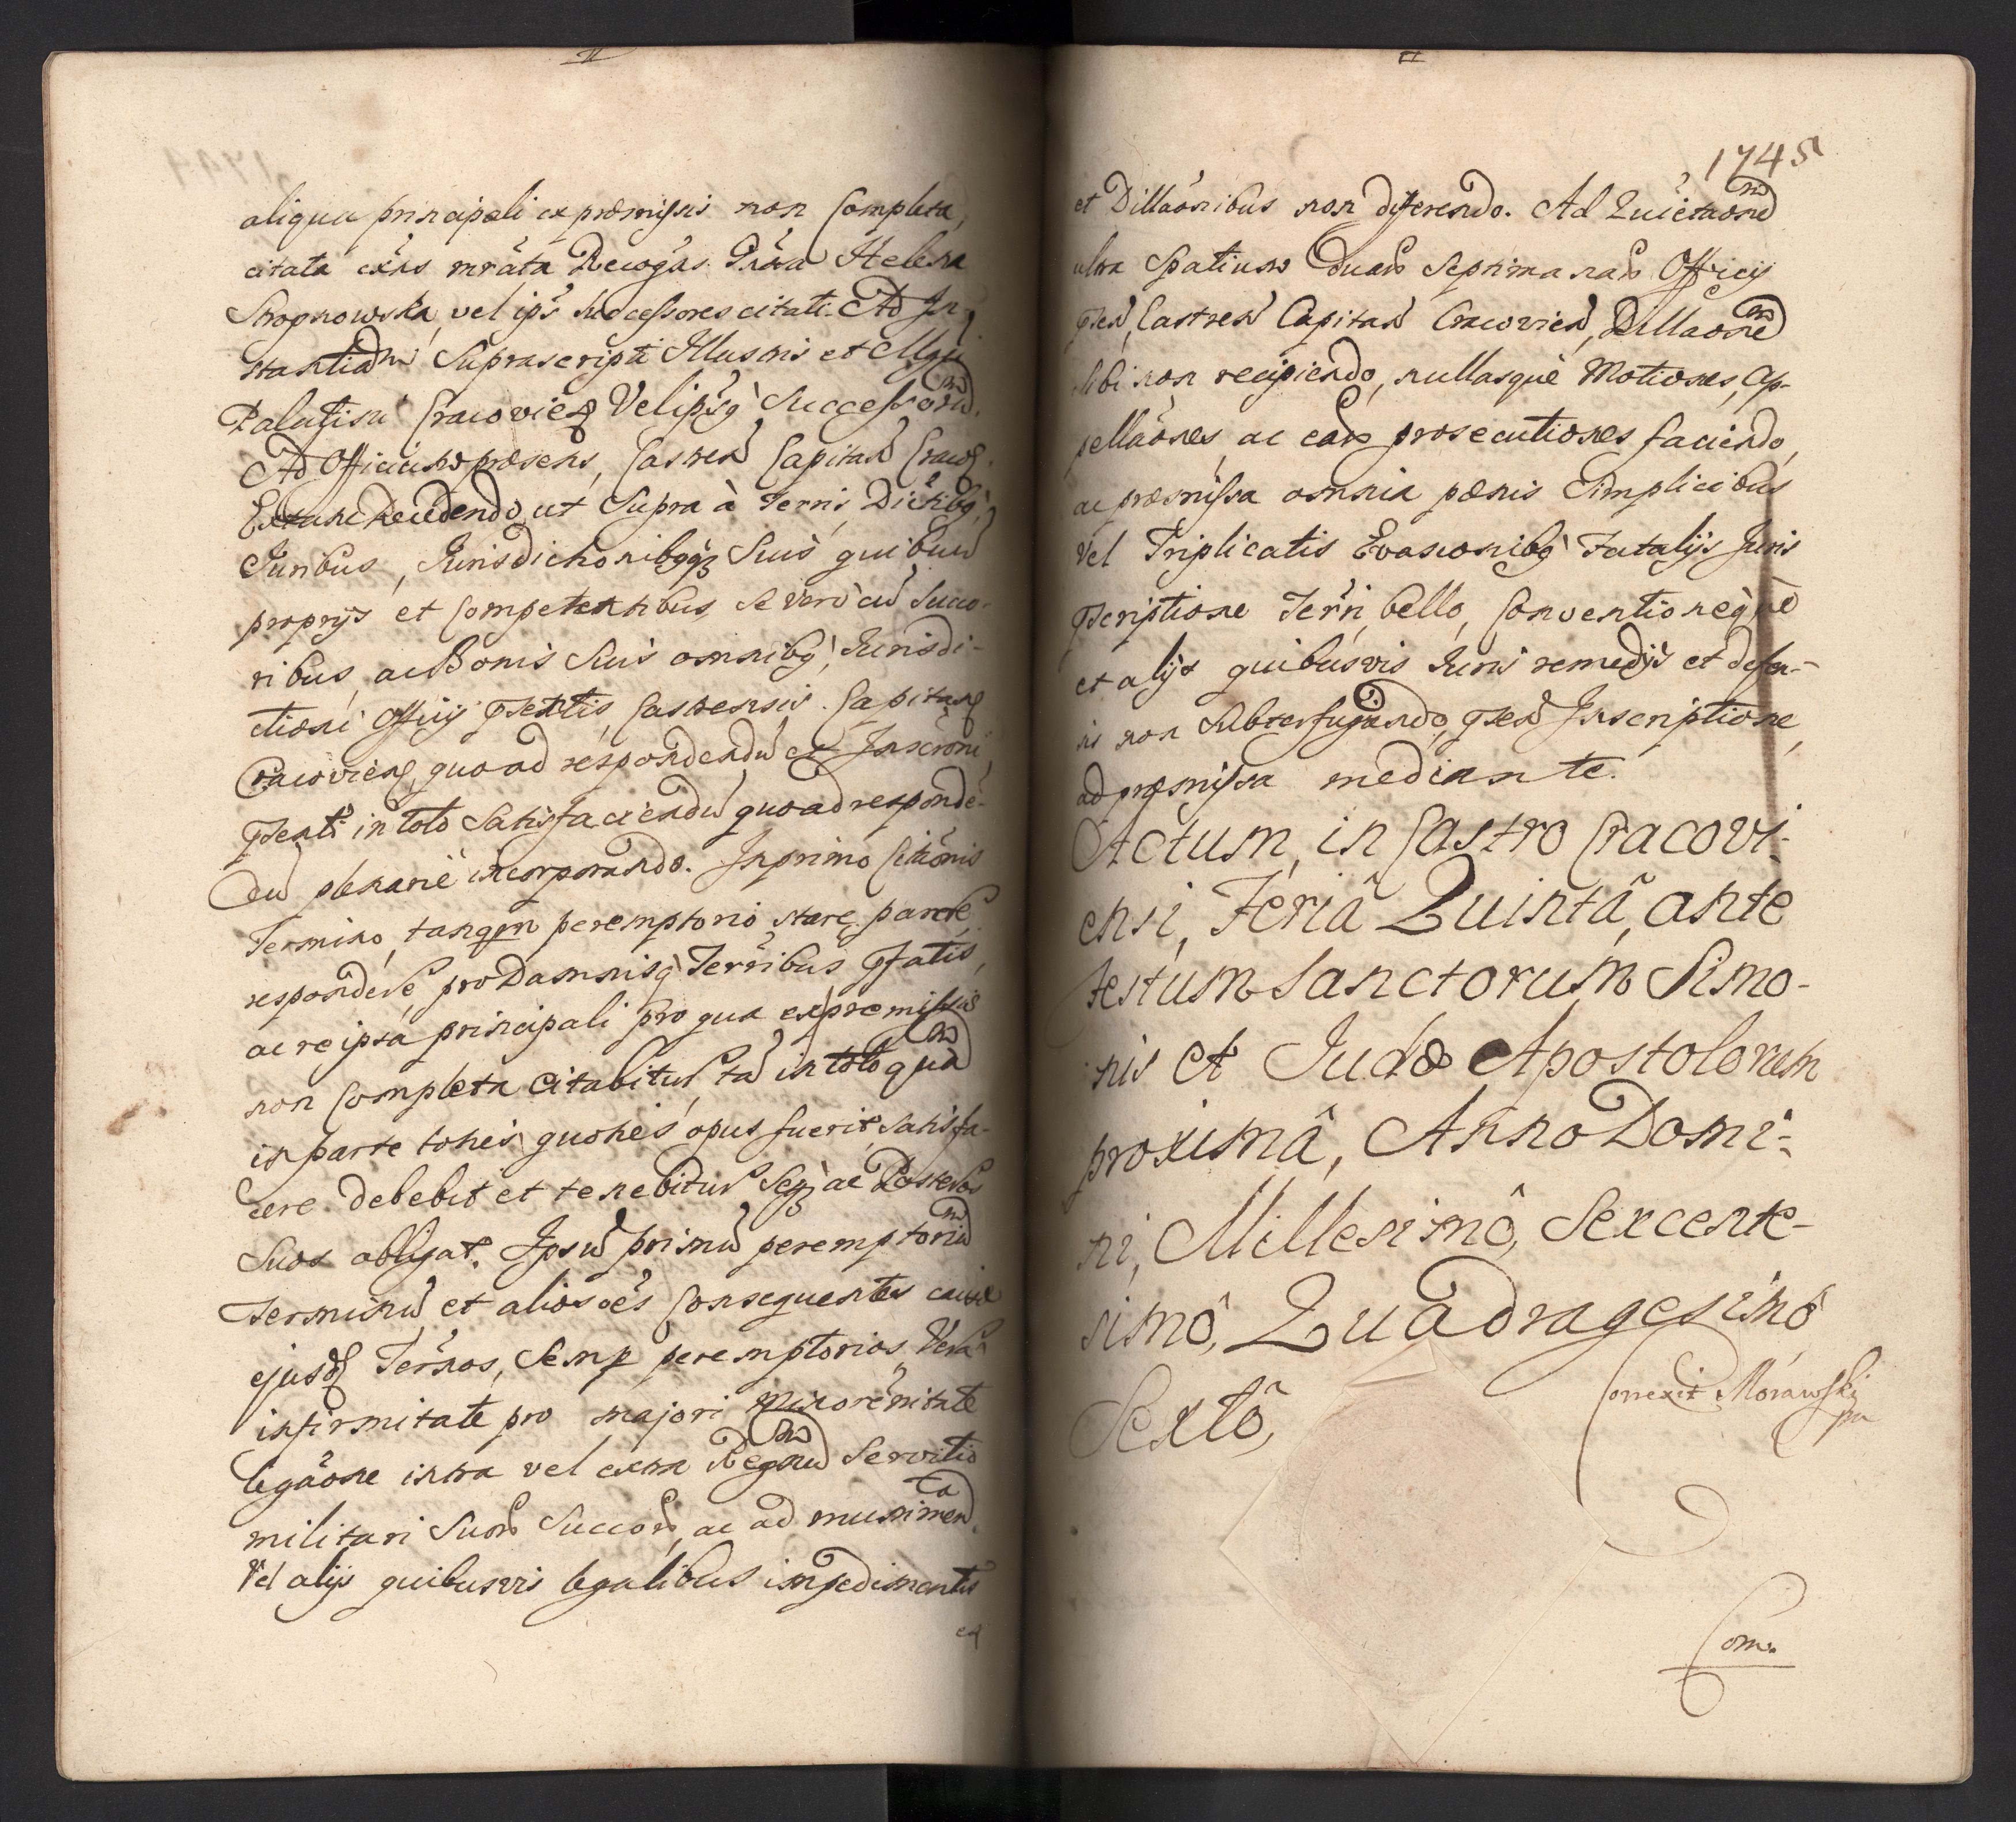 aliqua principali ex præmissis non Completa,
citata exñs mrata Recogñs Prñsa Helena
Stropnowska, vel ips successores citati. Ad In-
stantiam Suprascripti Illustris et Mgci
Palatini Cracovien Vel ipsg Successorum.
Ad Officium præsens, Castren Capitan Cracoŋ.
Extunc recedendo ut Supra à Terris, Districtibg,
Iuribus, Iurisdictionibgqz Suis quibusv
proprys et Competentibus, se verò cu Succo-
ribus, ac Bonis Suis omnibg, Iurisdi-
ctioni Officij pñtis, Castrensis Capitane
Cracovieng, quoad respondendu et Inscroni
pñti in toto Satisfaciendu quoad respondē-
du plenariè incorporando. Inprimo Citaonis
Termino, tanqm peremptorio stare, parere
respondere, pro Damnisq Terribus pfatis,
ac re ipsa principali pro qua ex præmissis
non Completa citabitur, ta in toto quam
in parte toties quoties opus fuerit, satisfa-
cere debebit et tenebitur Seqz ac Posteros
Suos obligat. Ipsu primu peremptorium
Terminu et alios oēs Consequentes causæ
ejusd Ternos, Semp peremptorios, Vera
infirmitate pro majori minorennitate
legaone intra vel extra Regnum Servitio
militari Suor Succor, ac ad munimenta
Vel alijs quibusvis legalibus impedimentis
et
1745
et Dillaonibus non differendo. Ad Quietaonem
ultra Spatium duar Septimanar Officij
pñen, Castren Capitan Cracovien, Dillaonem
sibi non recipiendo, nullasquè Motiones, Ap-
pellaones, ac ear prosecutiones faciendo,
ac præmissa omnia pænis Simplicibus
vel Triplicatis Evasionibg Fatalijs Juris
pscriptione Terri, bello, Conventionequè
et alijs quibusvis Iuris remedijs et defen-
is non Subterfugiendo, pñen Inscriptione,
ad præmissa mediante.
Actum, in Castro Cracovi-
ensi, Feriâ Quintâ, ante
Festum Sanctorum Simo-
nis et Judæ Apostolorum
proximâ, Anno Domi-
ni, Millesimô, Sexcente-
simô, Quadragesimô
Sextô,
Correxit Morawski
mp
Com.